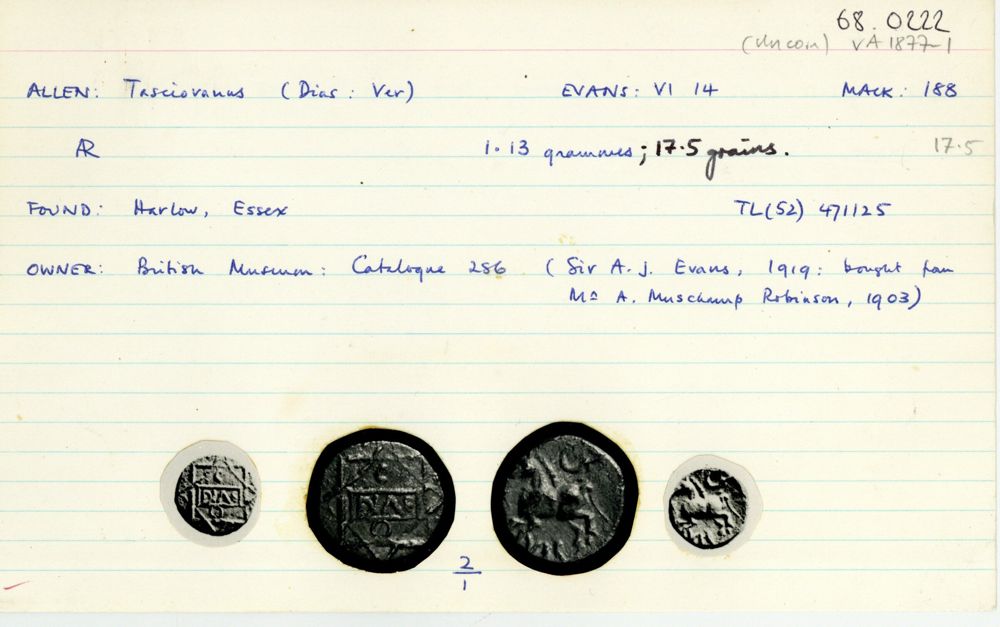 68.0222
(Uncoin) VA 1877-1
ALLEN: Tasciovanus (Dias: Ver) EVANS: VI 14 MACK: 188
AR 1.13 grammes; 17.5 grains. 17.5
FOUND: Harlow, Essex TL(52) 471125
OWNER: British Museum: Catalogue 286 (Sir A. J. Evans, 1919: bought from
Mr A. Muschamp Robinson, 1903)
DIAS
C
O
2
1